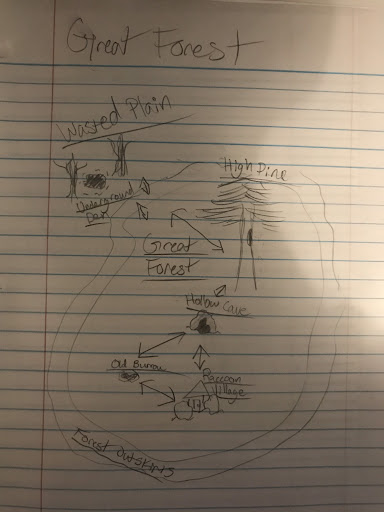 Great Forest
Wasted Plain
High Pine
Underground
Den
Great
Forest
Hollow Cave
Old Burrow
Raccoon
Village
Forest Outskirts